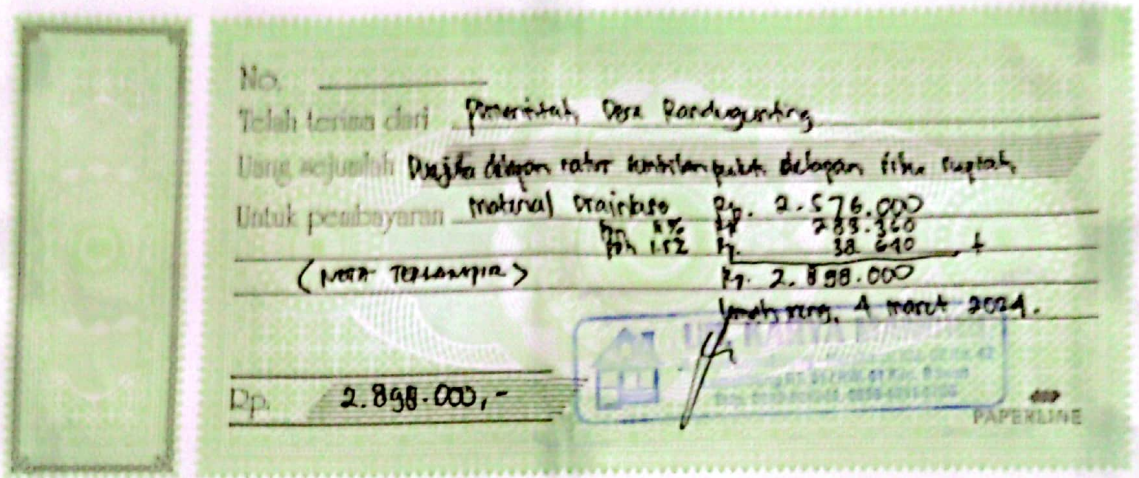 No.
Telah terima dari Pemerintah Desa Randugunting
Uang sejumlah Dua juta delapan ratus sembilan puluh delapan ribu rupiah
Untuk pembayaran Material Drainase Rp. 2.576.000
Ppn % Rp 283.360
Pph 1.5% Rp. 38.640 +
(NOTA TERLAMPIR) Rp. 2.898.000
4 maret 2024.
UD. KARYA
Rp. 2.898.000,-
PAPERLINE